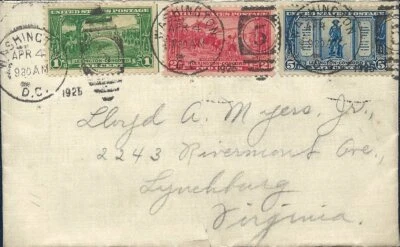 WASHINGTON
APR 4
930 AM
D.C.
1925
UNITED STATES POSTAGE
1 1
WASHINGTON
1925
2 2
WASHINGTON
UNITED STATES POSTAGE
5 5
Lloyd A. Myers, Jr.,
2243 Rivermont Ave.,
Lynchburg
Virginia.